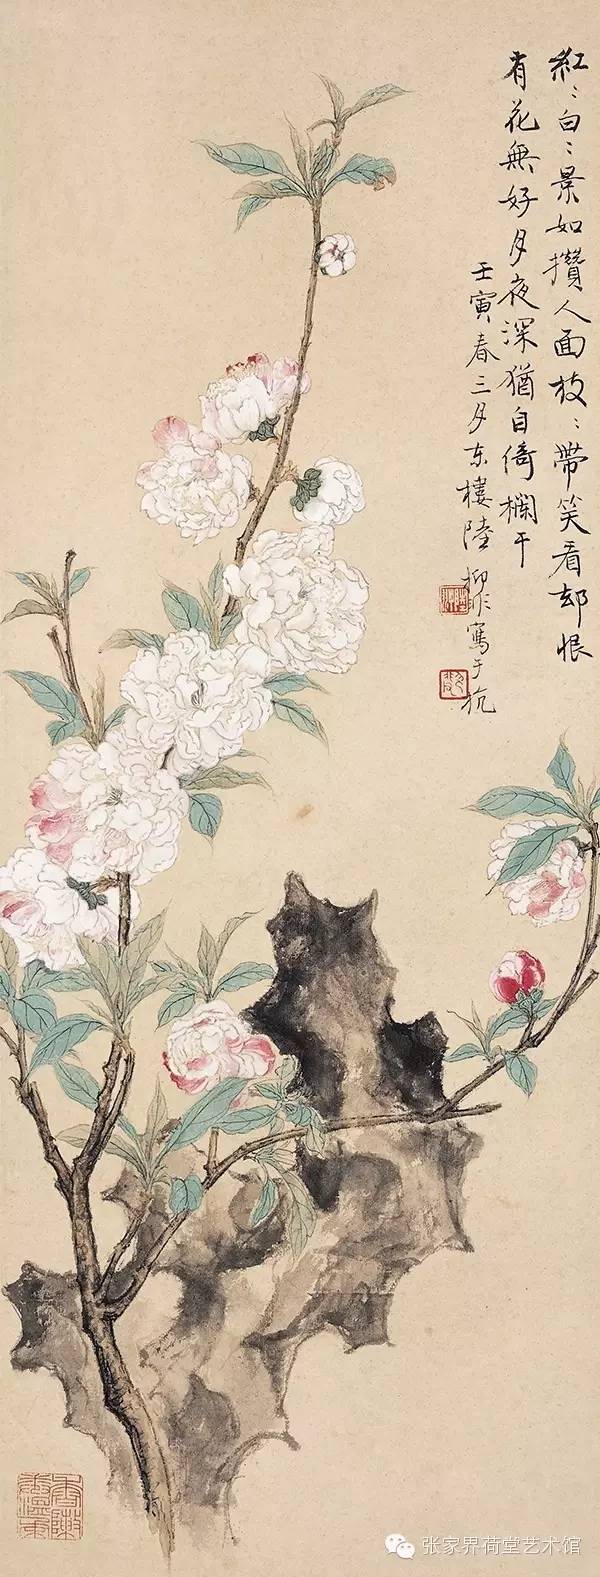 紅〻白〻景如攢人面枝〻帶笑看却恨
有花無好月夜深猶自倚欄干
壬寅春三月东樓陸抑非寫于杭
张家界荷堂艺术馆